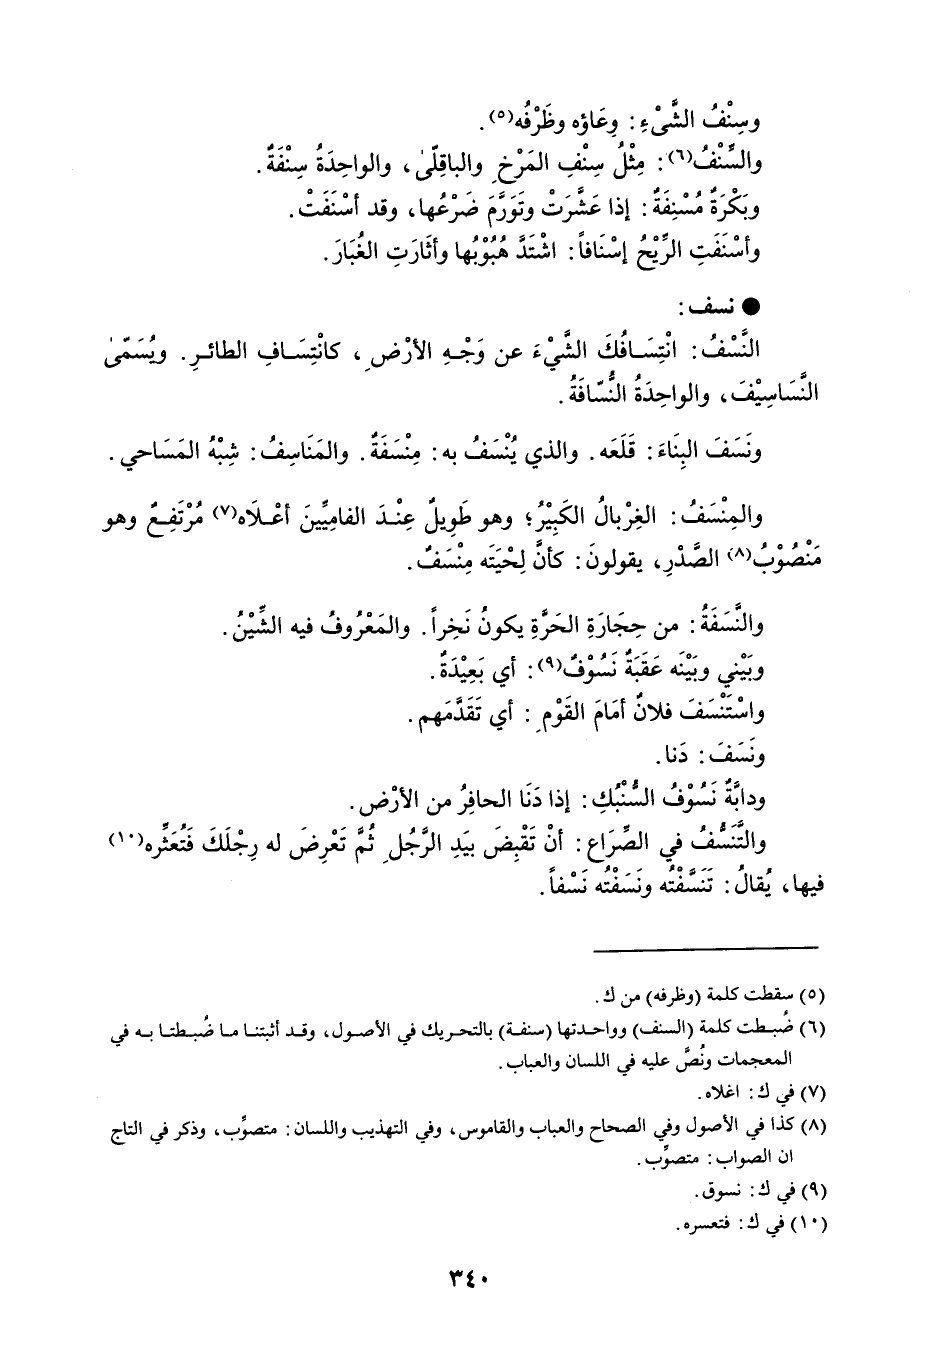 وسِنْفُ الشَّيْءِ: وِعَاؤه وظَرْفُه(٥).
والسِّنْفُ(٦): مِثْلُ سِنْفِ المَرْخِ والباقِلّىٰ، والواحِدَةُ سِنْفَةٌ.
وبَكْرَةٌ مُسْنِفَةٌ: إذا عَشَّرَتْ وتَوَرَّمَ ضَرْعُها، وقد أسْنَفَتْ.
وأسْنَفَتِ الرِّيْحُ إسْنَافاً: اشْتَدَّ هُبُوْبُها وأثَارَتِ الغُبَارَ.
● نسف:
النَّسْفُ: انْتِسَافُكَ الشَّيْءَ عن وَجْهِ الأرْضِ، كانْتِسَافِ الطائرِ. ويُسَمّىٰ
النَّسَاسِيْفَ، والواحِدَةُ النُّسّافَةُ.
ونَسَفَ البِنَاءَ: قَلَعَه. والذي يُنْسَفُ به: مِنْسَفَةٌ. والمَنَاسِفُ: شِبْهُ المَسَاحي.
والمِنْسَفُ: الغِرْبالُ الكَبِيْرُ؛ وهو طَوِيلٌ عِنْدَ الفامِيِّينَ أعْلَاه(٧) مُرْتَفِعٌ وهو
مَنْصُوْبُ(٨) الصَّدْرِ، يقولونَ: كأنَّ لِحْيَتَه مِنْسَفٌ.
والنَّسَفَةُ: من حِجَارَةِ الحَرَّةِ يكونُ نَخِراً. والمَعْرُوفُ فيه الشِّيْنُ.
وبَيْني وبَيْنَه عَقَبَةٌ نَسُوْفٌ(٩): أي بَعِيْدَةٌ.
واسْتَنْسَفَ فلانٌ أمَامَ القَوْمِ: أي تَقَدَّمَهم.
ونَسَفَ: دَنا.
ودابَّةٌ نَسُوْفُ السُّنْبُكِ: إذا دَنَا الحافِرُ من الأرْض.
والتَّنَسُّفُ في الصِّرَاع: أنْ تَقْبِضَ بيَدِ الرَّجُلِ ثُمَّ تَعْرِضَ له رِجْلَكَ فَتُعَثِّره(١٠)
فيها، يُقالُ: تَنَسَّفْتُه ونَسَفْتُه نَسْفاً.
(٥) سقطت كلمة (وظرفه) من ك.
(٦) ضُبطت كلمة (السنف) وواحدتها (سنفة) بالتحريك في الأصول، وقد أثبتنا ما ضُبطتا به في
المعجمات ونُصَّ عليه في اللسان والعباب.
(٧) في ك: اغلاه.
(٨) كذا في الأصول وفي الصحاح والعباب والقاموس، وفي التهذيب واللسان: متصوِّب، وذكر في التاج
ان الصواب: متصوِّب.
(٩) في ك: نسوق.
(١٠) في ك: فتعسره.
٣٤٠